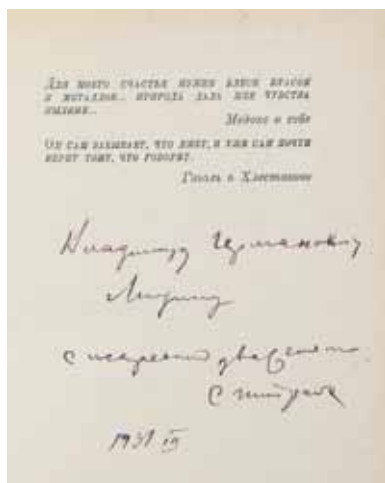 Для моего счастья нужен блеск красок
и металлов.. природа дала мне чувства
пылкие..
Медокс о себе
Он сам забывает, что лжет, и уже сам почти
верит тому, что говорит.
Гоголь о Хлестакове
Владимиру Германовичу
Лидину
с искренним уважением
С Штрайх
1931